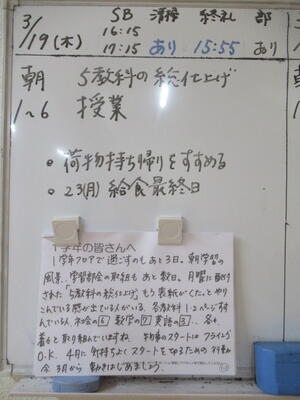 3/19(木) SB 清掃 終礼 部
16:15
17:15 あり 15:55 あり
朝 5教科の総仕上げ
1〜6 授業
荷物持ち帰りをすすめる
23(月) 給食最終日
1学年の皆さんへ
1学年フロアで過ごすのもあと3日。朝学習の
風景、学習部会の取組もあと数日。月曜に配付
された「5教科の総仕上げ」もう表紙がくたっとやり
こんでいる感が出ている人がいる。各教科1・2ページずす
んでいる人、社会の④ 数学の⑦ 英語の③...各々
着々と取り組んでいますね。 のスタートはフライング
O.K. 4月に気持ちよくスタートを切るための
今、3月から動きはじめましょう。